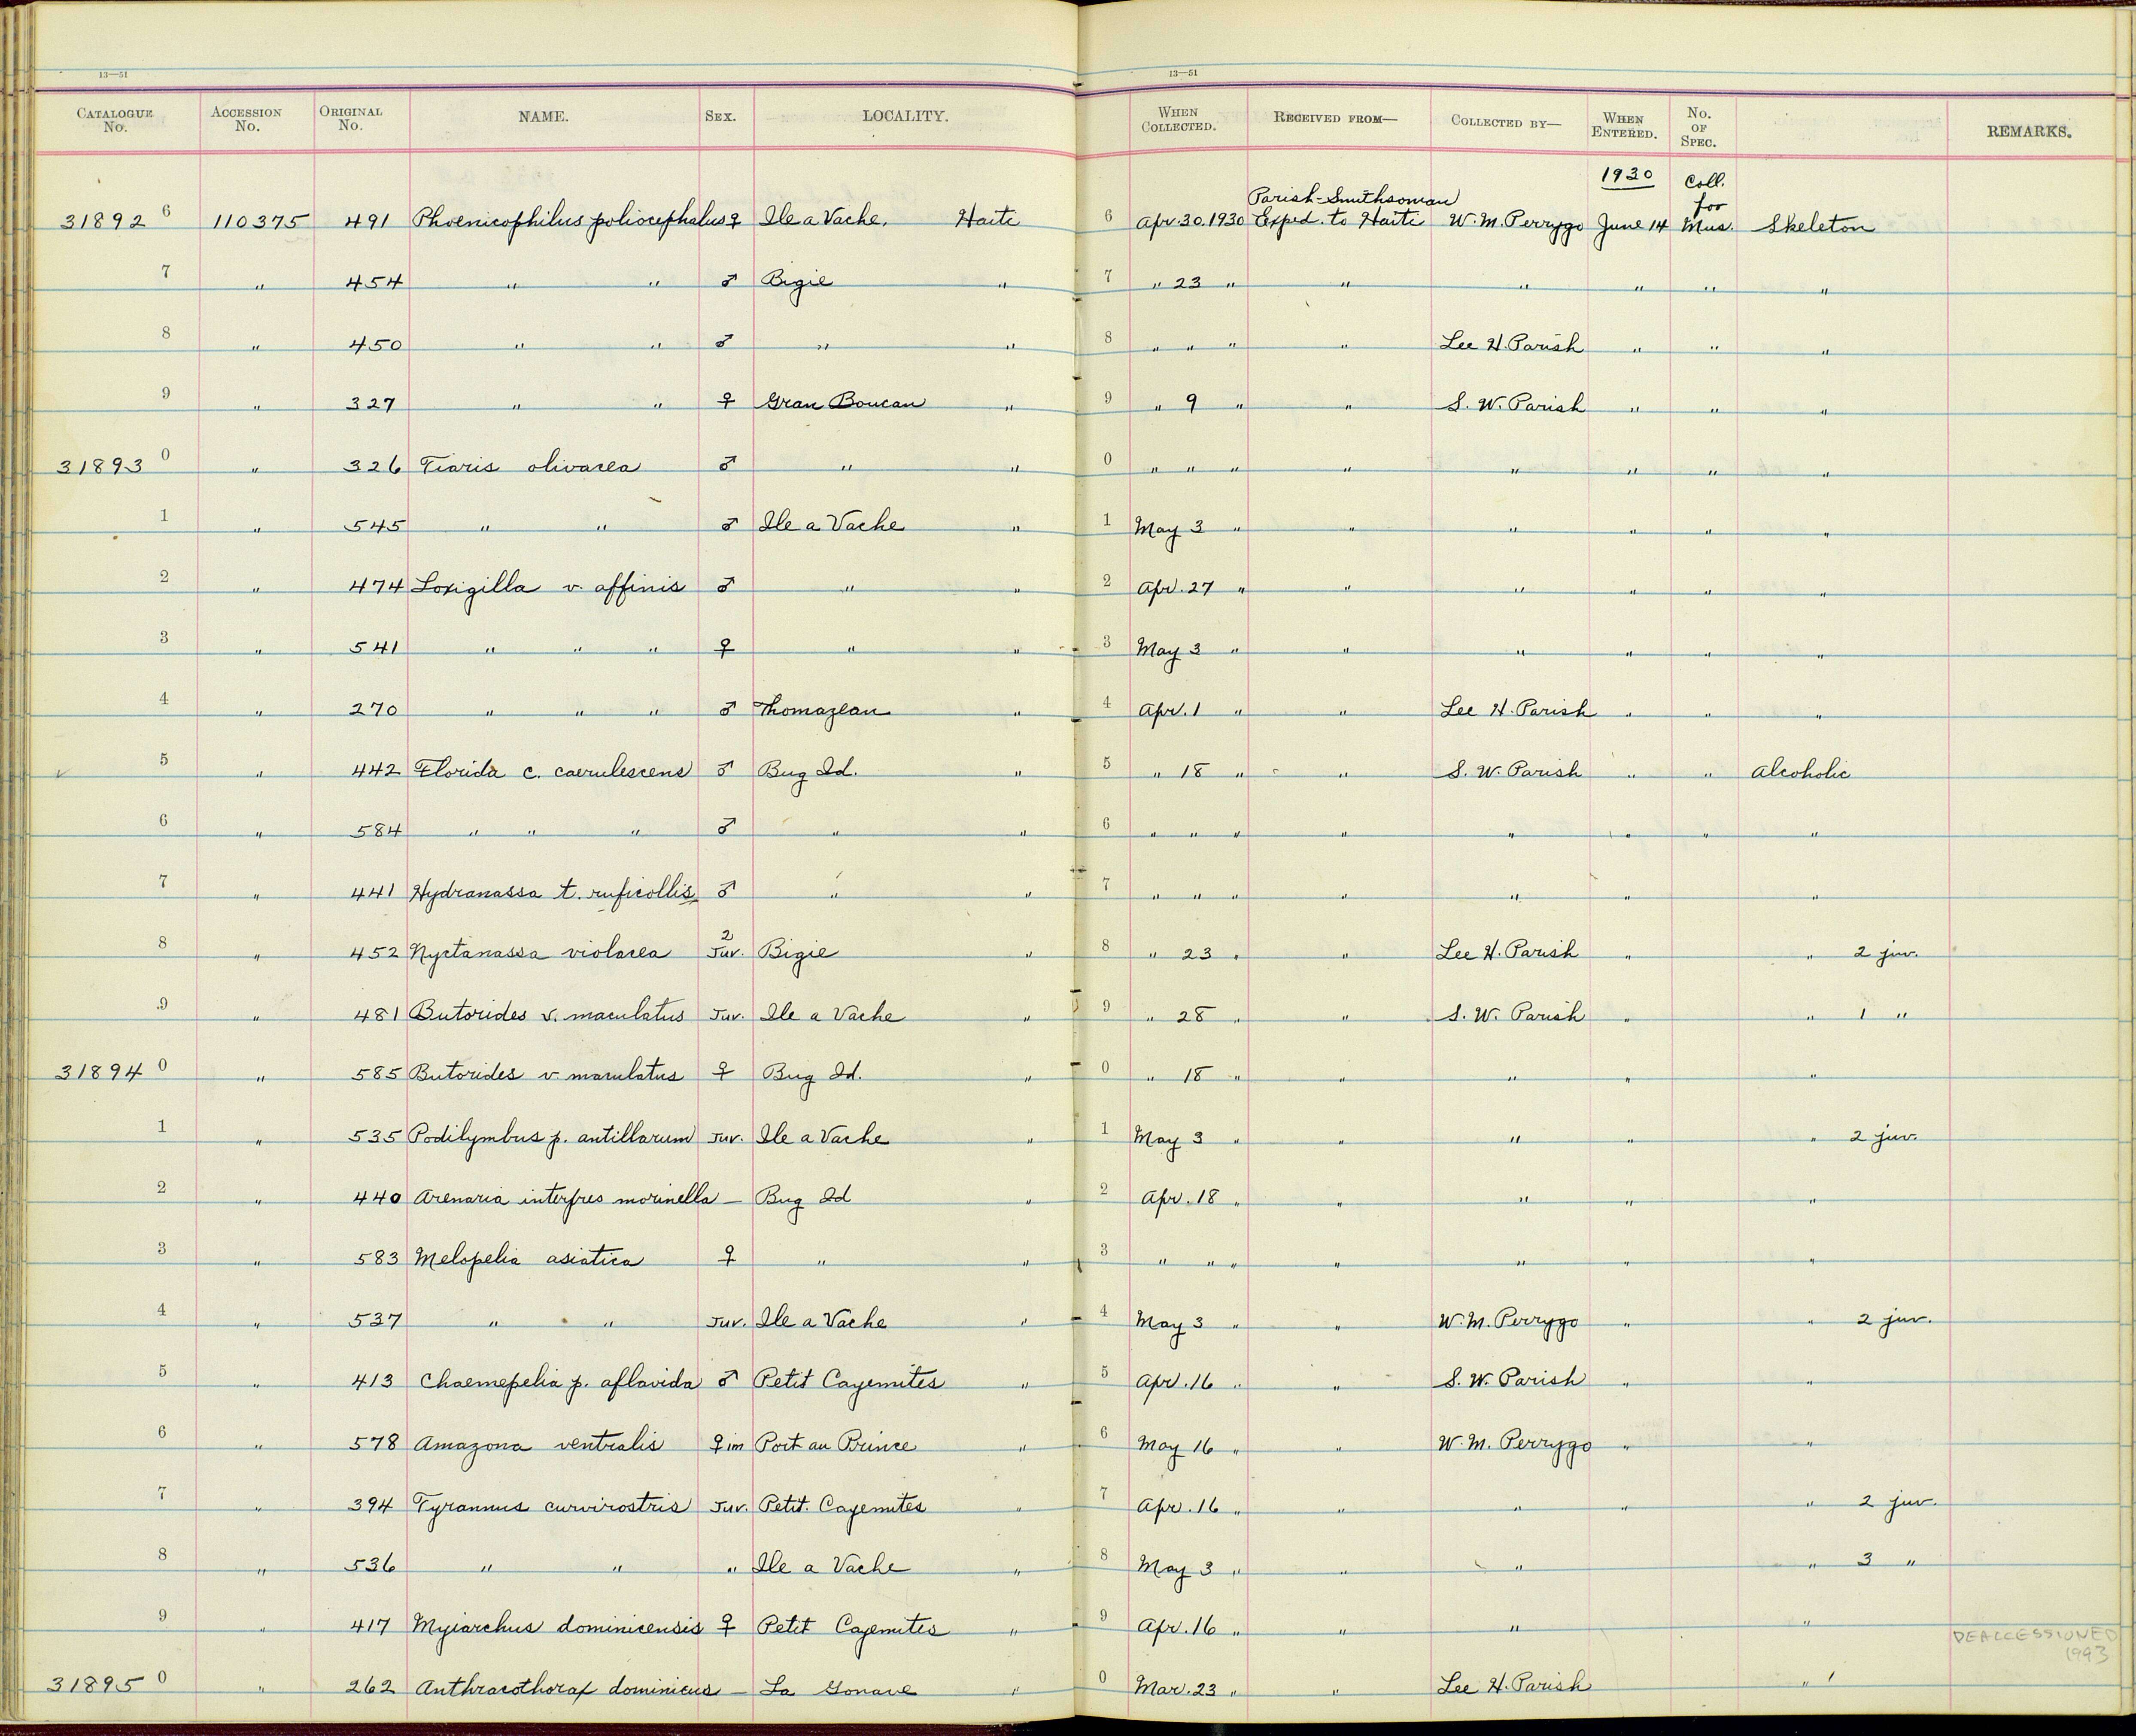 13—51 13—51
CATALOGUE No. ACCESSION No. ORIGINAL No. NAME. SEX. LOCALITY. WHEN COLLECTED. RECEIVED FROM— COLLECTED BY— WHEN ENTERED. No. OF SPEC. REMARKS.
1930
31892 6 110375 491 Phoenicophilus poliocephalus ♀ Ile a Vache, Haiti 6 Apr. 30. 1930 Parish-Smithsonian Exped. to Haiti W. M. Perrygo June 14 Coll. for Mus. Skeleton
7 " 454 " " ♂ Bigie " 7 " 23 " " " " " "
8 " 450 " " ♂ " " 8 " " " " Lee H. Parish " " "
9 " 327 " " ♀ Gran Boucan " 9 " 9 " " S. W. Parish " " "
31893 0 " 326 Tiaris olivacea ♂ " " 0 " " " " " " " "
1 " 545 " " ♂ Ile a Vache " 1 May 3 " " " " " "
2 " 474 Loxigilla v. affinis ♂ " " 2 Apr. 27 " " " " " "
3 " 541 " " " ♀ " " 3 May 3 " " " " " "
4 " 270 " " " ♂ Thomazeau " 4 Apr. 1 " " Lee H. Parish " " "
5 " 442 Florida c. caerulescens ♂ Bug Id. " 5 " 18 " " S. W. Parish " " Alcoholic
6 " 584 " " " ♂ " " 6 " " " " " " " "
7 " 441 Hydranassa t. ruficollis ♂ " " 7 " " " " " " "
8 " 452 Nyctanassa violacea 2 Juv. Bigie " 8 " 23 " " Lee H. Parish " " 2 juv.
9 " 481 Butorides v. maculatus Juv. Ile a Vache " 9 " 28 " " S. W. Parish " " 1 "
31894 0 " 585 Butorides v. maculatus ♀ Bug Id. " 0 " 18 " " " " "
1 " 535 Podilymbus p. antillarum Juv. Ile a Vache " 1 May 3 " " " " " 2 juv.
2 " 440 Arenaria interpres morinella — Bug Id " 2 Apr. 18 " " " " "
3 " 583 Melopelia asiatica ♀ " " 3 " " " " " " "
4 " 537 " " Juv. Ile a Vache " 4 May 3 " " W. M. Perrygo " " 2 juv.
5 " 413 Chaemepelia p. aflavida ♂ Petit Cayemites " 5 Apr. 16 " " S. W. Parish " "
6 " 578 Amazona ventralis ♀ im Port au Prince " 6 May 16 " " W. M. Perrygo " "
7 " 394 Tyrannus curvirostris Juv. Petit. Cayemites " 7 Apr. 16 " " " " " 2 juv.
8 " 536 " " " Ile a Vache " 8 May 3 " " " " 3 "
9 " 417 Myiarchus dominicensis ♀ Petit Cayemites " 9 Apr. 16 " " " " DEACCESSIONED 1993
31895 0 " 262 Anthracothorax dominicus — La Gonave " 0 Mar. 23 " " Lee H. Parish "